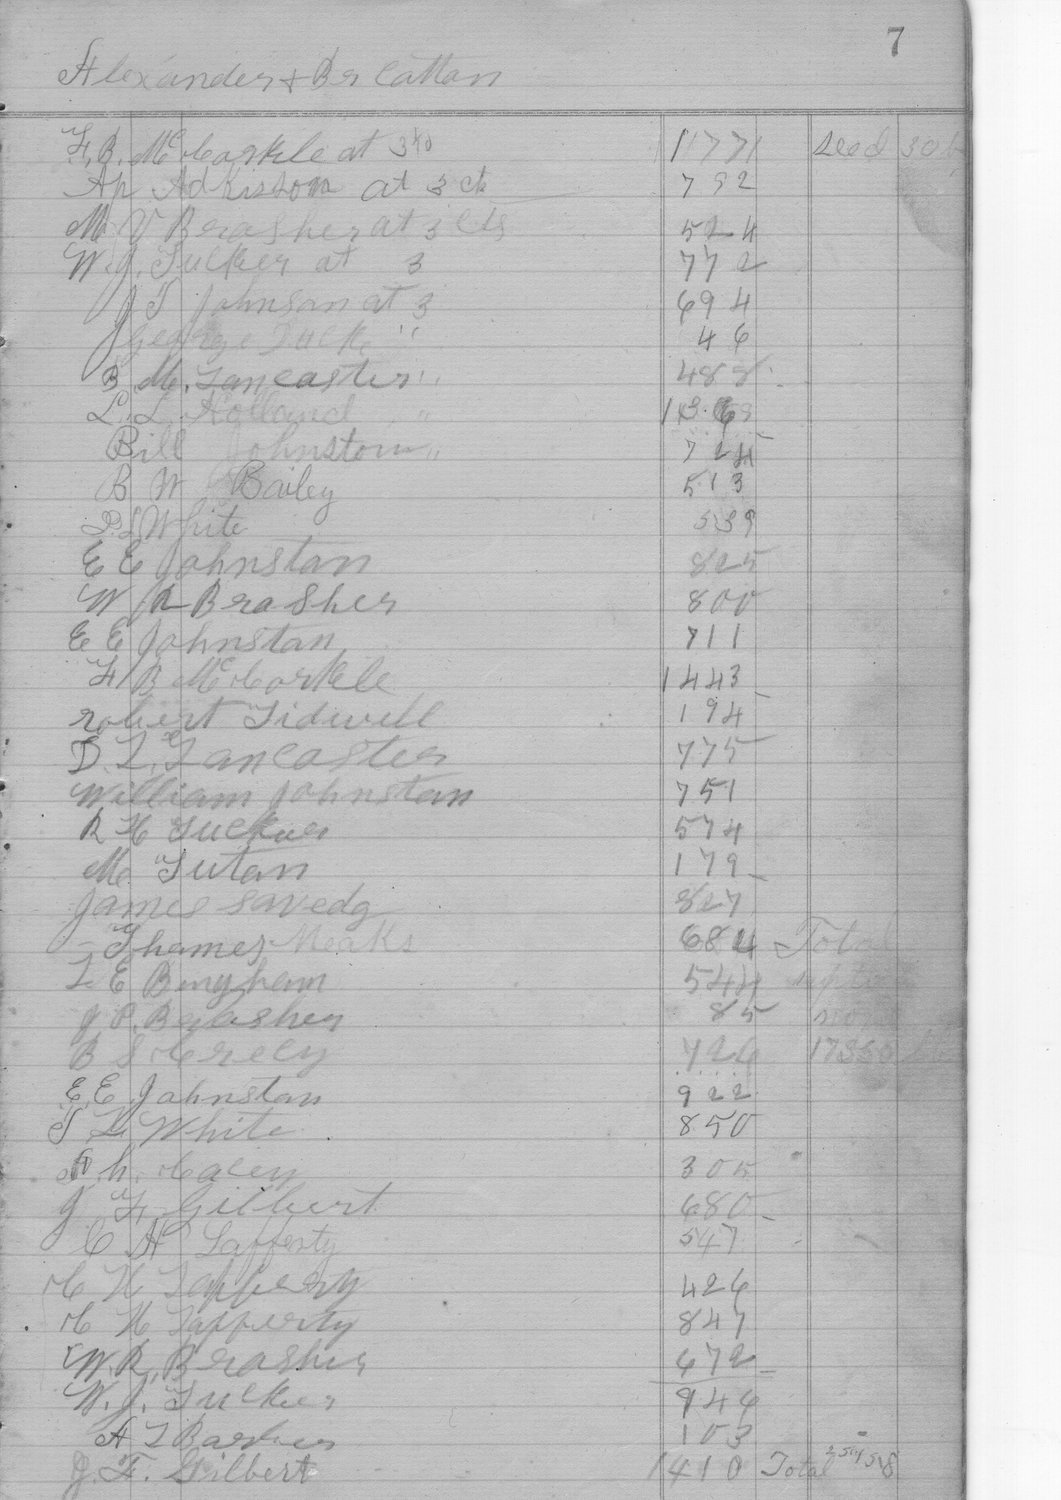 7
Alexander & Br Cattan
F. B. McCorkle at 3 40 11771 Seed 30
Ap Adkisson at 3 cts 792
M V Brasher at 3 cts 524
W. J. Tucker at 3 772
J T Johnson at 3 694
George Tuck " 46
B M. Lancaster " 488
L. L. Holland "
Bill Johnston " 724
B W Bailey 513
White 539
E E Johnstan 825
W R Brasher 800
E E Johnstan 711
F B McCorkle 1443
robert Tidwell 194
D. L. Lancaster 775
William Johnstan 751
R H Tucker 574
Mc Tutan 179
James Savedg 827
Thomes Meaks 684 Total
L E Bingham 544 up to
J P. Brasher 85 now
B S Crely 726
E. E. Johnstan 922
T L White 850
h. Caley 305
J F Gilbert 680
C H Lafferty 547
C H Lafferty 426
C H Lafferty 847
W. R. Brasher 672
W. J. Tucker 946
A L Barker 103
J. F. Gilbert 1410 Total